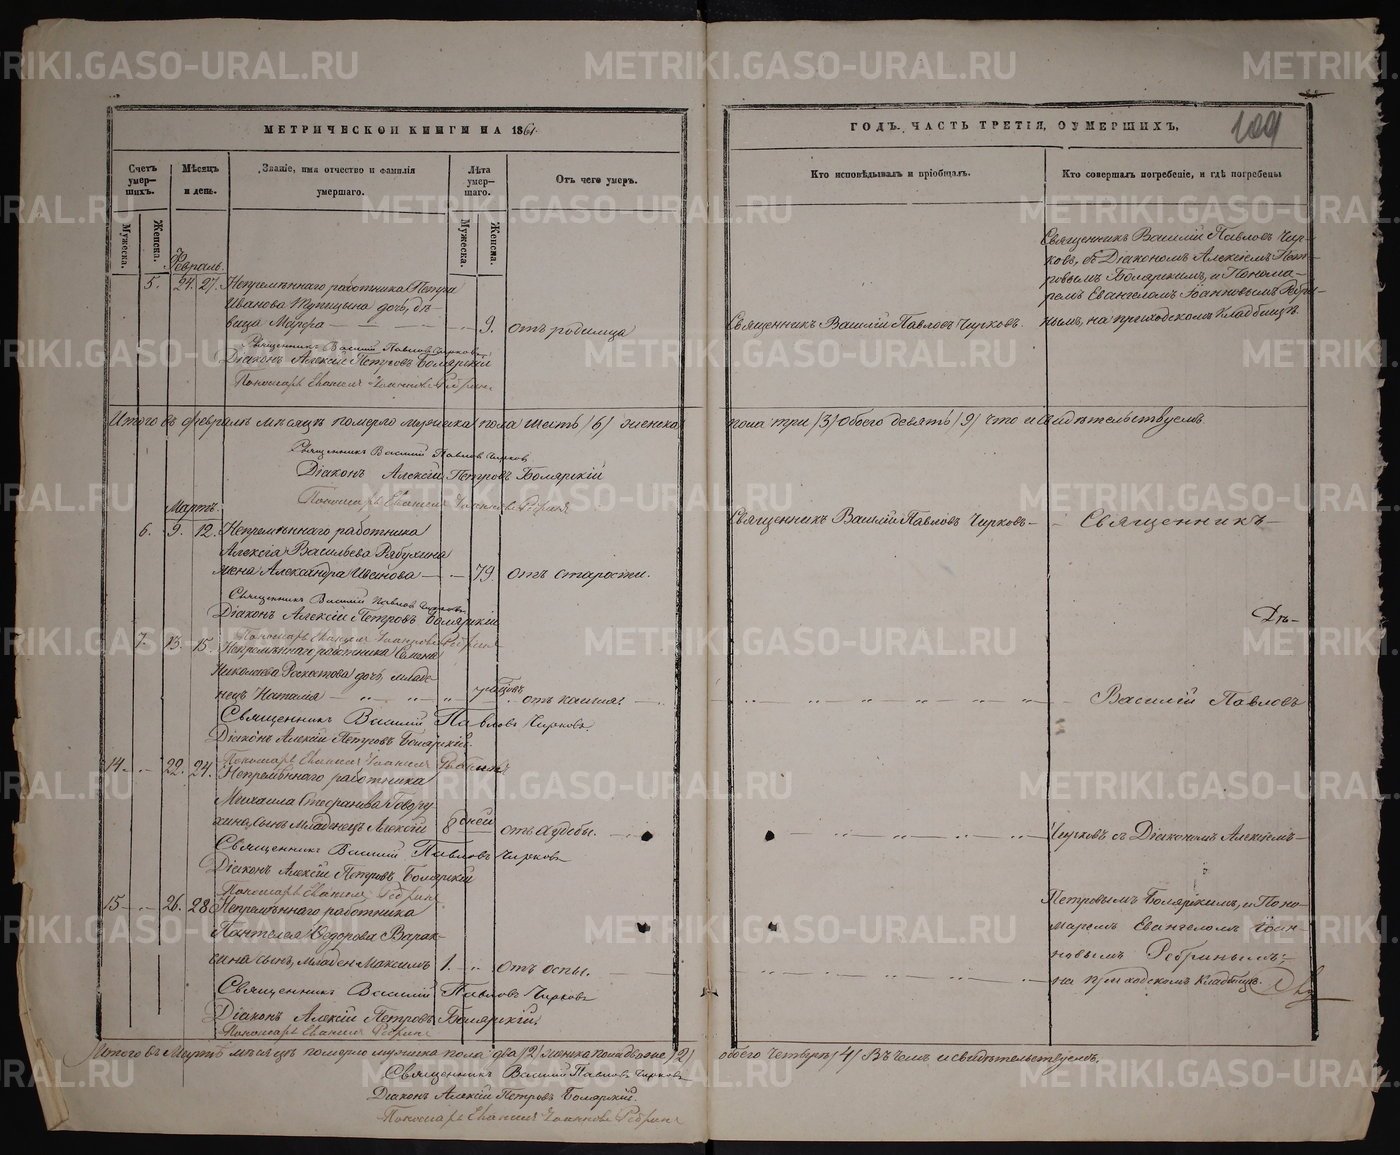 METRIKI.GASO-URAL.RU
МЕТРИЧЕСКОЙ КНИГИ НА 1861.
ГОДЪ. ЧАСТЬ ТРЕТІЯ, О УМЕРШИХЪ,
109
Счетъ умер-шихъ.
Мѣсяцъ и день.
Званіе, имя отчество и фамилія умершаго.
Лѣта умер-шаго.
Отъ чего умеръ.
Кто исповѣдывалъ и пріобщалъ.
Кто совершалъ погребеніе, и гдѣ погребены
Мужеска.
Женска.
Мужеска.
Женска.
Февраль.
5. 24. 27. Непремѣннаго работника Петра
Иванова дочь, дѣ-
вица Марѳа 9. отъ родимца
Священникъ Василій Павловъ Чирковъ
Діаконъ Алексій Петровъ Болярскій
Пономарь Евангелъ Іоанновъ Ребринъ
Священникъ Василій Павловъ Чирковъ.
Священникъ Василій Павловъ Чир-
ковъ, съ Діакономъ Алексіемъ Пет-
ровымъ Болярскимъ, и Понома-
ремъ Евангеломъ Іоанновымъ Ребри-
нымъ, на приходскомъ Кладбищѣ.
Итого въ Февралѣ мѣсяцѣ померло мужеска пола шесть /6/ женска
пола три /3/ обоего девять /9/ что и свидѣтельствуемъ
Священникъ Василій Павловъ Чирковъ
Діаконъ Алексій Петровъ Болярскій
Пономарь Евангелъ Іоанновъ Ребринъ
Мартъ.
6. 9. 12. Непремѣннаго работника
Алексѣя Васильева Рябухина
жена Александра Иванова 79. отъ старости.
Священникъ Василій Павловъ Чирковъ
Діаконъ Алексій Петровъ Болярскій
Пономарь Евангелъ Іоанновъ Ребринъ
Священникъ Василій Павловъ Чирковъ
Священникъ
7. 13. 15. Непремѣннаго работника Семена
Николаева дочь, младе-
нецъ Наталія отъ кашля.
Священникъ Василій Павловъ Чирковъ.
Діаконъ Алексій Петровъ Болярскій.
Пономарь Евангелъ Іоанновъ Ребринъ
Василій Павловъ
14. 22. 24. Непремѣннаго работника
Михаила Говору-
хина, сынъ младенецъ Алексій 8 дней отъ худобы.
Священникъ Василій Павловъ Чирковъ
Діаконъ Алексій Петровъ Болярскій
Пономарь Евангелъ Ребринъ
Чирковъ съ Діакономъ Алексіемъ
15. 26. 28. Непремѣннаго работника
Пантелея Ѳедорова Варак-
сина сынъ, младен. Максимъ 1. отъ оспы.
Священникъ Василій Павловъ Чирковъ
Діаконъ Алексій Петровъ Болярскій,
Пономарь Евангелъ Ребринъ
Петровымъ Болярскимъ, и Поно-
маремъ Евангеломъ Іоан-
новымъ Ребринымъ
на приходскомъ Кладбищѣ.
Итого въ Мартѣ мѣсяцѣ померло мужеска пола два /2/ женска пола двое /2/
обоего четверо /4/ въ чемъ и свидѣтельствуемъ,
Священникъ Василій Павловъ Чирковъ
Діаконъ Алексій Петровъ Болярскій.
Пономарь Евангелъ Іоанновъ Ребринъ